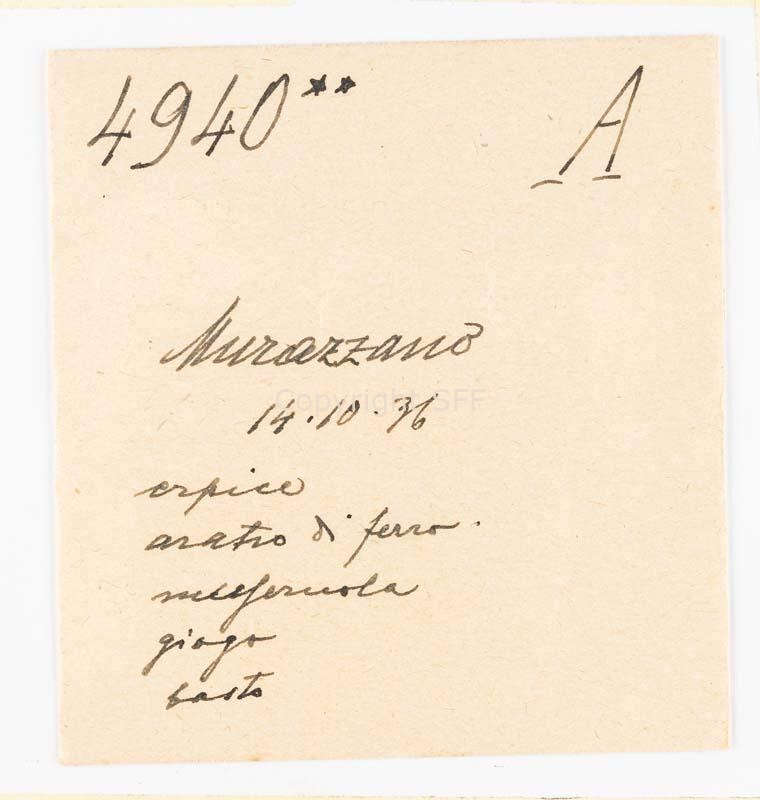 4940** A
Murazzano
14.10.36
Copyright SFF
erpice
aratro di ferro.
giogo
basto